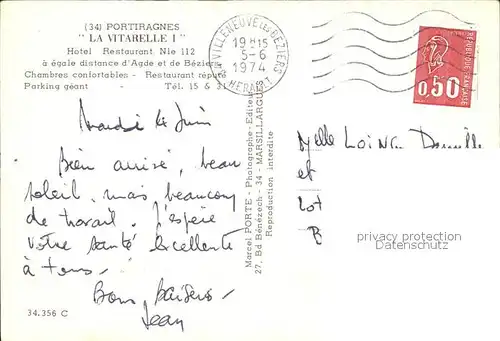 (34) PORTIRAGNES
" LA VITARELLE I "
Hotel Restaurant Nle 112
à égale distance d'Agde et de Bézie
Chambres confortables - Restaurant réputé
Parking géant - Tél. 15 & 3
VILLENEUVE LES BEZIERS
19H15
5-6
1974
HERAULT
REPUBLIQUE FRANCAISE
0,50
Juin
Bien arrivé, beau
soleil, mais beaucoup
de travail. J'espère
votre santé excellente
à tous.
Bons baisers
Jean
Marcel PORTE - Photographe-Editeur
27, Bd Bénézech - 34 - MARSILLARGUES
Reproduction interdite
et
privacy protection
Datenschutz
34.356 C